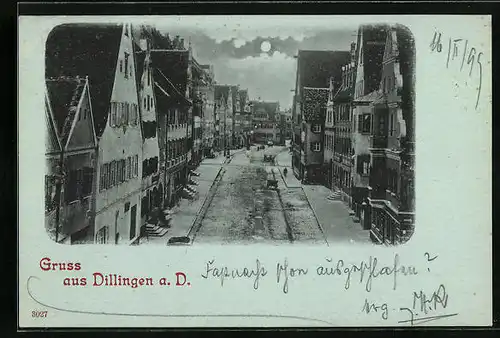 16/II/99
Gruss
aus Dillingen a. D.
Fastnacht schon ausgeschlafen?
erg.
3027